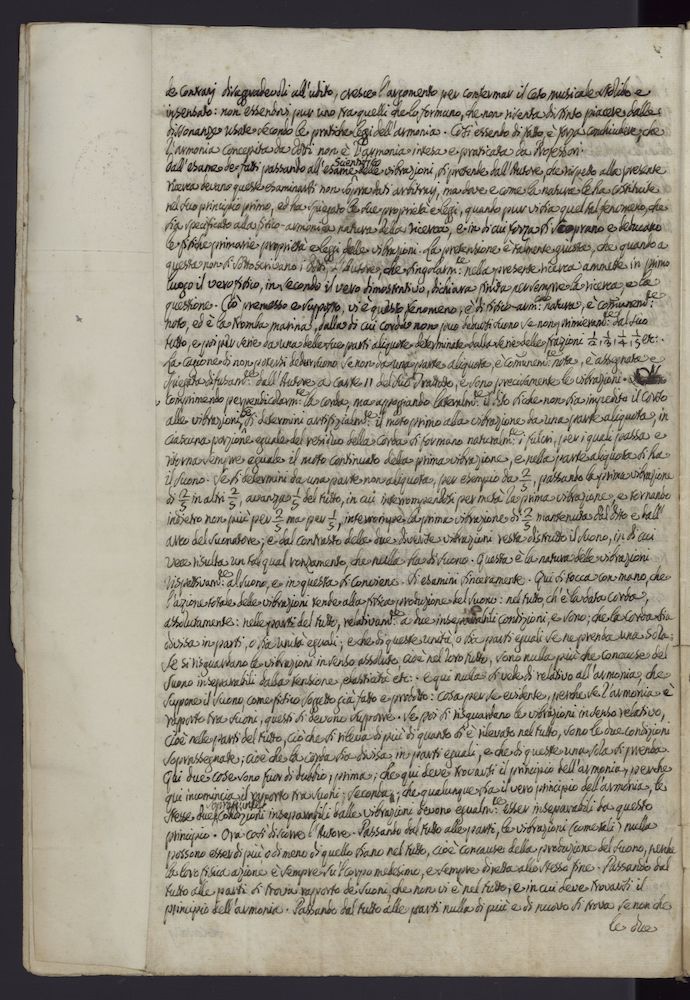 de contrarj disaggradevoli all'udito, cresce l'argomento per confermar il ceto musicale stolido e
insensato: non essendovi pur uno tra quelli che lo formano, che non risenta distinto piacere dalle
dissonanze usate secondo le pratiche leggi dell'armonia. Così essendo di fatto è forza conchiudere, che
l'armonia concepita da dotti non è l'armonia intesa e praticata da Professori.
Dall'esame de fatti passando all'esame scientifico delle vibrazioni, si pretende dall'Autore, che rispetto alla presente
ricerca devano queste esaminarsi non sopra dati arbitrarj, ma dove e come la natura le ha costituite
nel suo principio primo, ed ha spiegato le sue proprietà e leggi, quando pur vi sia quel tal fenomeno, che
sia specificato alla fisico-armonica natura della ricerca, e in di cui forza si scoprano e deducano
le fisiche primarie proprietà e leggi delle vibrazioni. La pretensione è talmente giusta, che quando a
questa non si sottoscrivano i Dotti, l'Autore, che singolarm:te nella presente ricerca ammette in primo
luogo il vero fisico, in secondo il vero dimostrativo, dichiara finita per sempre la ricerca, e la
questione. Ciò premesso e supposto, vi è questo fenomeno, è di fisico-arm:ca natura, è comunem:te
noto, ed è la Tromba marina, dalla di cui corda non si può dedurre suono se non primieram:te dal suo
tutto, e poi per serie da una delle sue parti aliquote determinate dalla serie delle frazioni 1/2, 1/3, 1/4, 1/5 etc:
La cagione di non potersi dedur suono se non da una parte aliquota, è comunem:te nota, è assegnata e
spiegata diffusam:te dall'Autore a carte 11 del suo Trattato, e sono precisamente le vibrazioni. Non
comprimendo perpendicolarm:te la corda, ma appoggiando lateralm:te il dito sì che non sia impedito il corso
alle vibrazioni, e si determini artifizialm:te il moto primo alla vibrazione da una parte aliquota, in
ciascuna porzione eguale del residuo della corda si formano naturalm:te i fulcri, per i quali passa e
ritorna sempre eguale il moto continuato della prima vibrazione, e nella parte aliquota si ha
il suono. Se si determini da una parte non aliquota, per esempio da 2/5, passando la prima vibrazione
di 2/5 in altri 2/5, avanza 1/5 del tutto, in cui interrompendosi per metà la prima vibrazione, e tornando
indietro non più per 2/5 ma per 1/5, interrompe la prima vibrazione di 2/5 mantenuta dal dito e dall'
arco del suonatore; e dal contrasto delle due diverse vibrazioni resta distrutto il suono, in di cui
vece risulta un tal qual ronzamento, che nulla ha di suono. Questa è la natura delle vibrazioni
rispettivam:te al suono, e in questa si conviene. Si esamini sinceramente. Qui si tocca con mano, che
l'azione totale delle vibrazioni tende alla fisica produzione del suono: nel tutto, ch'è la data corda,
assolutamente: nelle parti del tutto, relativam:te a due inseparabili condizioni, e sono; che la corda sia
divisa in parti, o sia unità eguali; e che di queste unità o sia parti eguali se ne prenda una sola.
Se si risguardano le vibrazioni in senso assoluto, cioè nel loro tutto, sono nulla più che concause del
suono inseparabili dalla tensione, elasticità etc: e qui nulla si vede di relativo all'armonia, che
suppone il suono, come fisico soggetto già fatto e prodotto: cosa per se evidente, perchè se l'armonia è
rapporto tra suoni, questi si devono supporre. Se poi si risguardano le vibrazioni in senso relativo,
cioè nelle parti del tutto, ciò che si rileva di più di quanto si è rilevato nel tutto, sono le due condizioni
soprassegnate; cioè che la corda sia divisa in parti eguali, e che di queste una sola si prenda.
Qui due cose sono fuor di dubbio, prima; che qui deve trovarsi il principio dell'armonia, perchè
qui incomincia il rapporto tra suoni: seconda; che qualunque sia il vero principio dell'armonia, le
stesse due sopraggiunte condizioni inseparabili dalle vibrazioni devono egualm:te esser inseparabili da questo
principio. Ora così discorre l'Autore. Passando dal tutto alle parti, le vibrazioni (come tali) nulla
possono esser di più o di meno di quello siano nel tutto, cioè concause della produzione del suono, perchè
la loro fisica azione è sempre su'l corpo medesimo, e sempre diretta allo stesso fine. Passando dal
tutto alle parti si trova rapporto de suoni, che non vi è nel tutto, e in cui deve trovarsi il
principio dell'armonia. Passando dal tutto alle parti nulla di più e di nuovo si trova se non che
le due